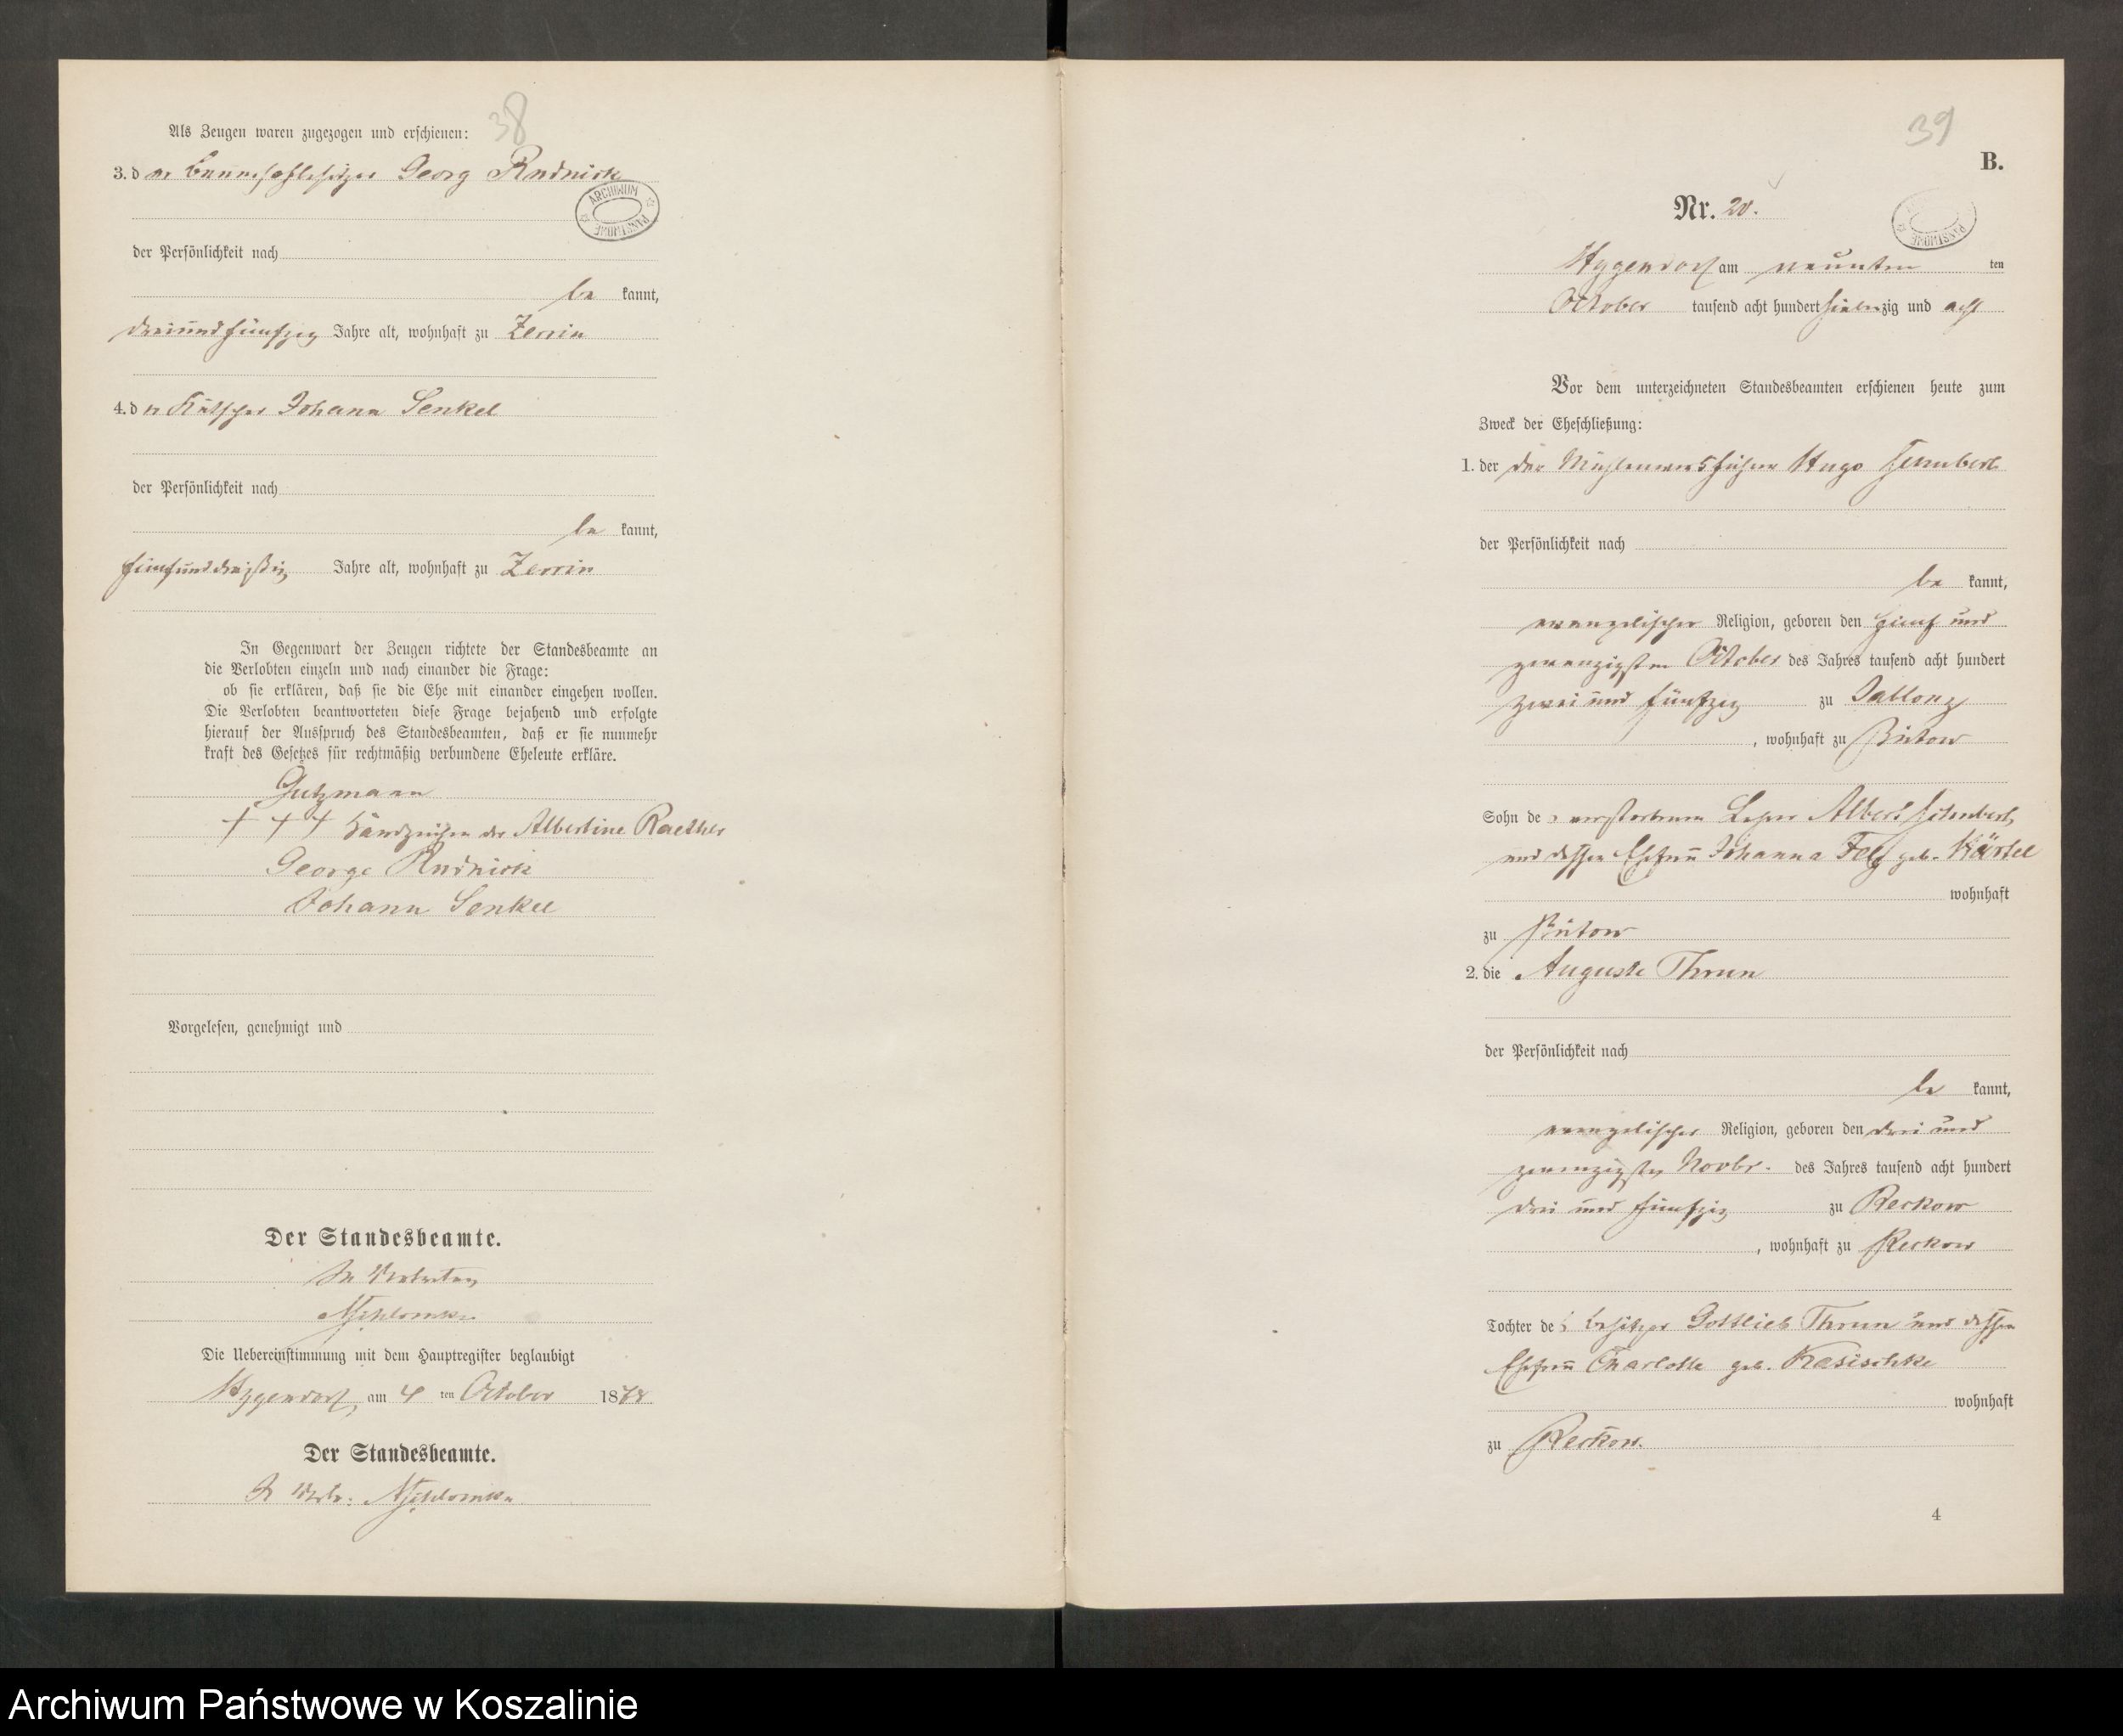 38
Als Zeugen waren zugezogen und erschienen:
3. der Georg Rudnick
ARCHIWUM PAŃSTWOWE
der Persönlichkeit nach
be kannt,
dreiundfünfzig Jahre alt, wohnhaft zu Zerrin
4. der Kutscher Johann Senkel
der Persönlichkeit nach
be kannt,
fünfunddreißig Jahre alt, wohnhaft zu Zerrin
In Gegenwart der Zeugen richtete der Standesbeamte an
die Verlobten einzeln und nach einander die Frage:
ob sie erklären, daß sie die Ehe mit einander eingehen wollen.
Die Verlobten beantworteten diese Frage bejahend und erfolgte
hierauf der Ausspruch des Standesbeamten, daß er sie nunmehr
kraft des Gesetzes für rechtmäßig verbundene Eheleute erkläre.
Gutzmann
+ + + Handzeichen der Albertine Raether
George Rudnick
Johann Senkel
Vorgelesen, genehmigt und
Der Standesbeamte.
In Vertretung
Die Uebereinstimmung mit dem Hauptregister beglaubigt
am 4 ten October 1878
Der Standesbeamte.
39
B.
Nr. 20.
am neunten ten
October tausend acht hundert siebenzig und acht
Vor dem unterzeichneten Standesbeamten erschienen heute zum
Zweck der Eheschließung:
1. der der Hugo
der Persönlichkeit nach
be kannt,
evangelischer Religion, geboren den fünf und
zwanzigsten October des Jahres tausend acht hundert
zwei und fünfzig zu
, wohnhaft zu Bütow
Sohn des verstorbenen Albert
und dessen Ehefrau Johanna geb.
wohnhaft
zu Bütow
2. die Auguste Thrun
der Persönlichkeit nach
be kannt,
evangelischer Religion, geboren den drei und
zwanzigsten Novbr. des Jahres tausend acht hundert
drei und fünfzig zu Reckow
, wohnhaft zu Reckow
Tochter des Besitzer Gottlieb Thrun und dessen
Ehefrau Charlotte geb. Kasischke
wohnhaft
zu Reckow.
4
Archiwum Państwowe w Koszalinie